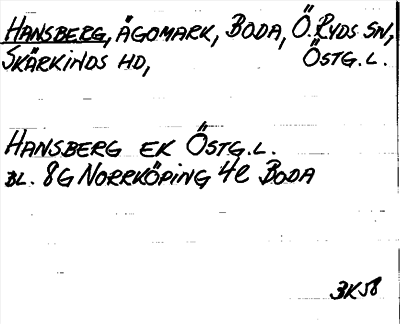 HANSBERG, ÄGOMARK, BODA, Ö. RYDS SN,
SKÄRKINDS HD, ÖSTG. L.
HANSBERG EK ÖSTG. L.
BL. 8G NORRKÖPING 4e BODA
3K58